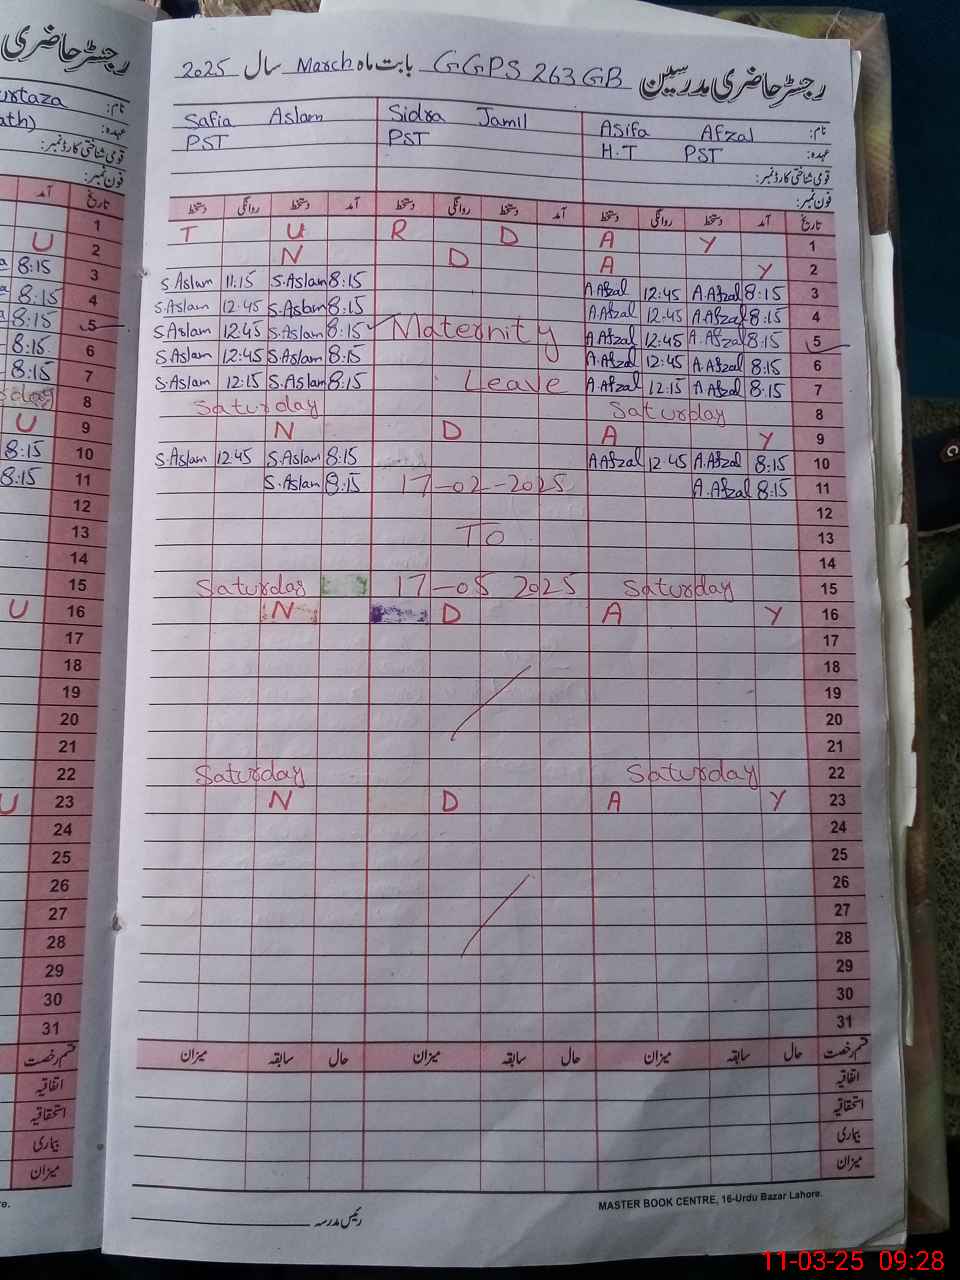 رجسٹر حاضری مدرسین GGPS 263 GB بابت ماہ March سال 2025
نام: Asifa Afzal Sidra Jamil Safia Aslam
عہدہ: H.T PST PST PST
قومی شناختی کارڈ نمبر:
فون نمبر:
تاریخ آمد دستخط روانگی دستخط آمد دستخط روانگی دستخط آمد دستخط روانگی دستخط
T U R D A Y 1
N D A Y 2
S.Aslam 11:15 S.Aslam 8:15 A.Afzal 12:45 A.Afzal 8:15 3
S.Aslam 12:45 S.Aslam 8:15 A.Afzal 12:45 A.Afzal 8:15 4
S.Aslam 12:45 S.Aslam 8:15 Maternity A.Afzal 12:45 A.Afzal 8:15 5
S.Aslam 12:45 S.Aslam 8:15 A.Afzal 12:45 A.Afzal 8:15 6
S.Aslam 12:15 S.Aslam 8:15 Leave A.Afzal 12:15 A.Afzal 8:15 7
Saturday Saturday 8
N D A Y 9
S.Aslam 12:45 S.Aslam 8:15 A.Afzal 12:45 A.Afzal 8:15 10
S.Aslam 8:15 17-02-2025 A.Afzal 8:15 11
12
TO 13
14
Saturday 17-05 2025 Saturday 15
N D A Y 16
17
18
19
20
21
Saturday Saturday 22
N D A Y 23
24
25
26
27
28
29
30
31
قسم رخصت حال سابقہ میزان حال سابقہ میزان حال سابقہ میزان
اتفاقیہ
استحقاقیہ
بیماری
میزان
MASTER BOOK CENTRE, 16-Urdu Bazar Lahore.
رئیس مدرسہ
رجسٹر حاضری
نام:
عہدہ:
قومی شناختی کارڈ نمبر:
فون نمبر:
آمد تاریخ
1
U 2
8:15 3
8:15 4
8:15 5
8:15 6
8:15 7
8
U 9
8:15 10
8:15 11
12
13
14
15
U 16
17
18
19
20
21
22
U 23
24
25
26
27
28
29
30
31
قسم رخصت
اتفاقیہ
استحقاقیہ
بیماری
میزان
11-03-25 09:28